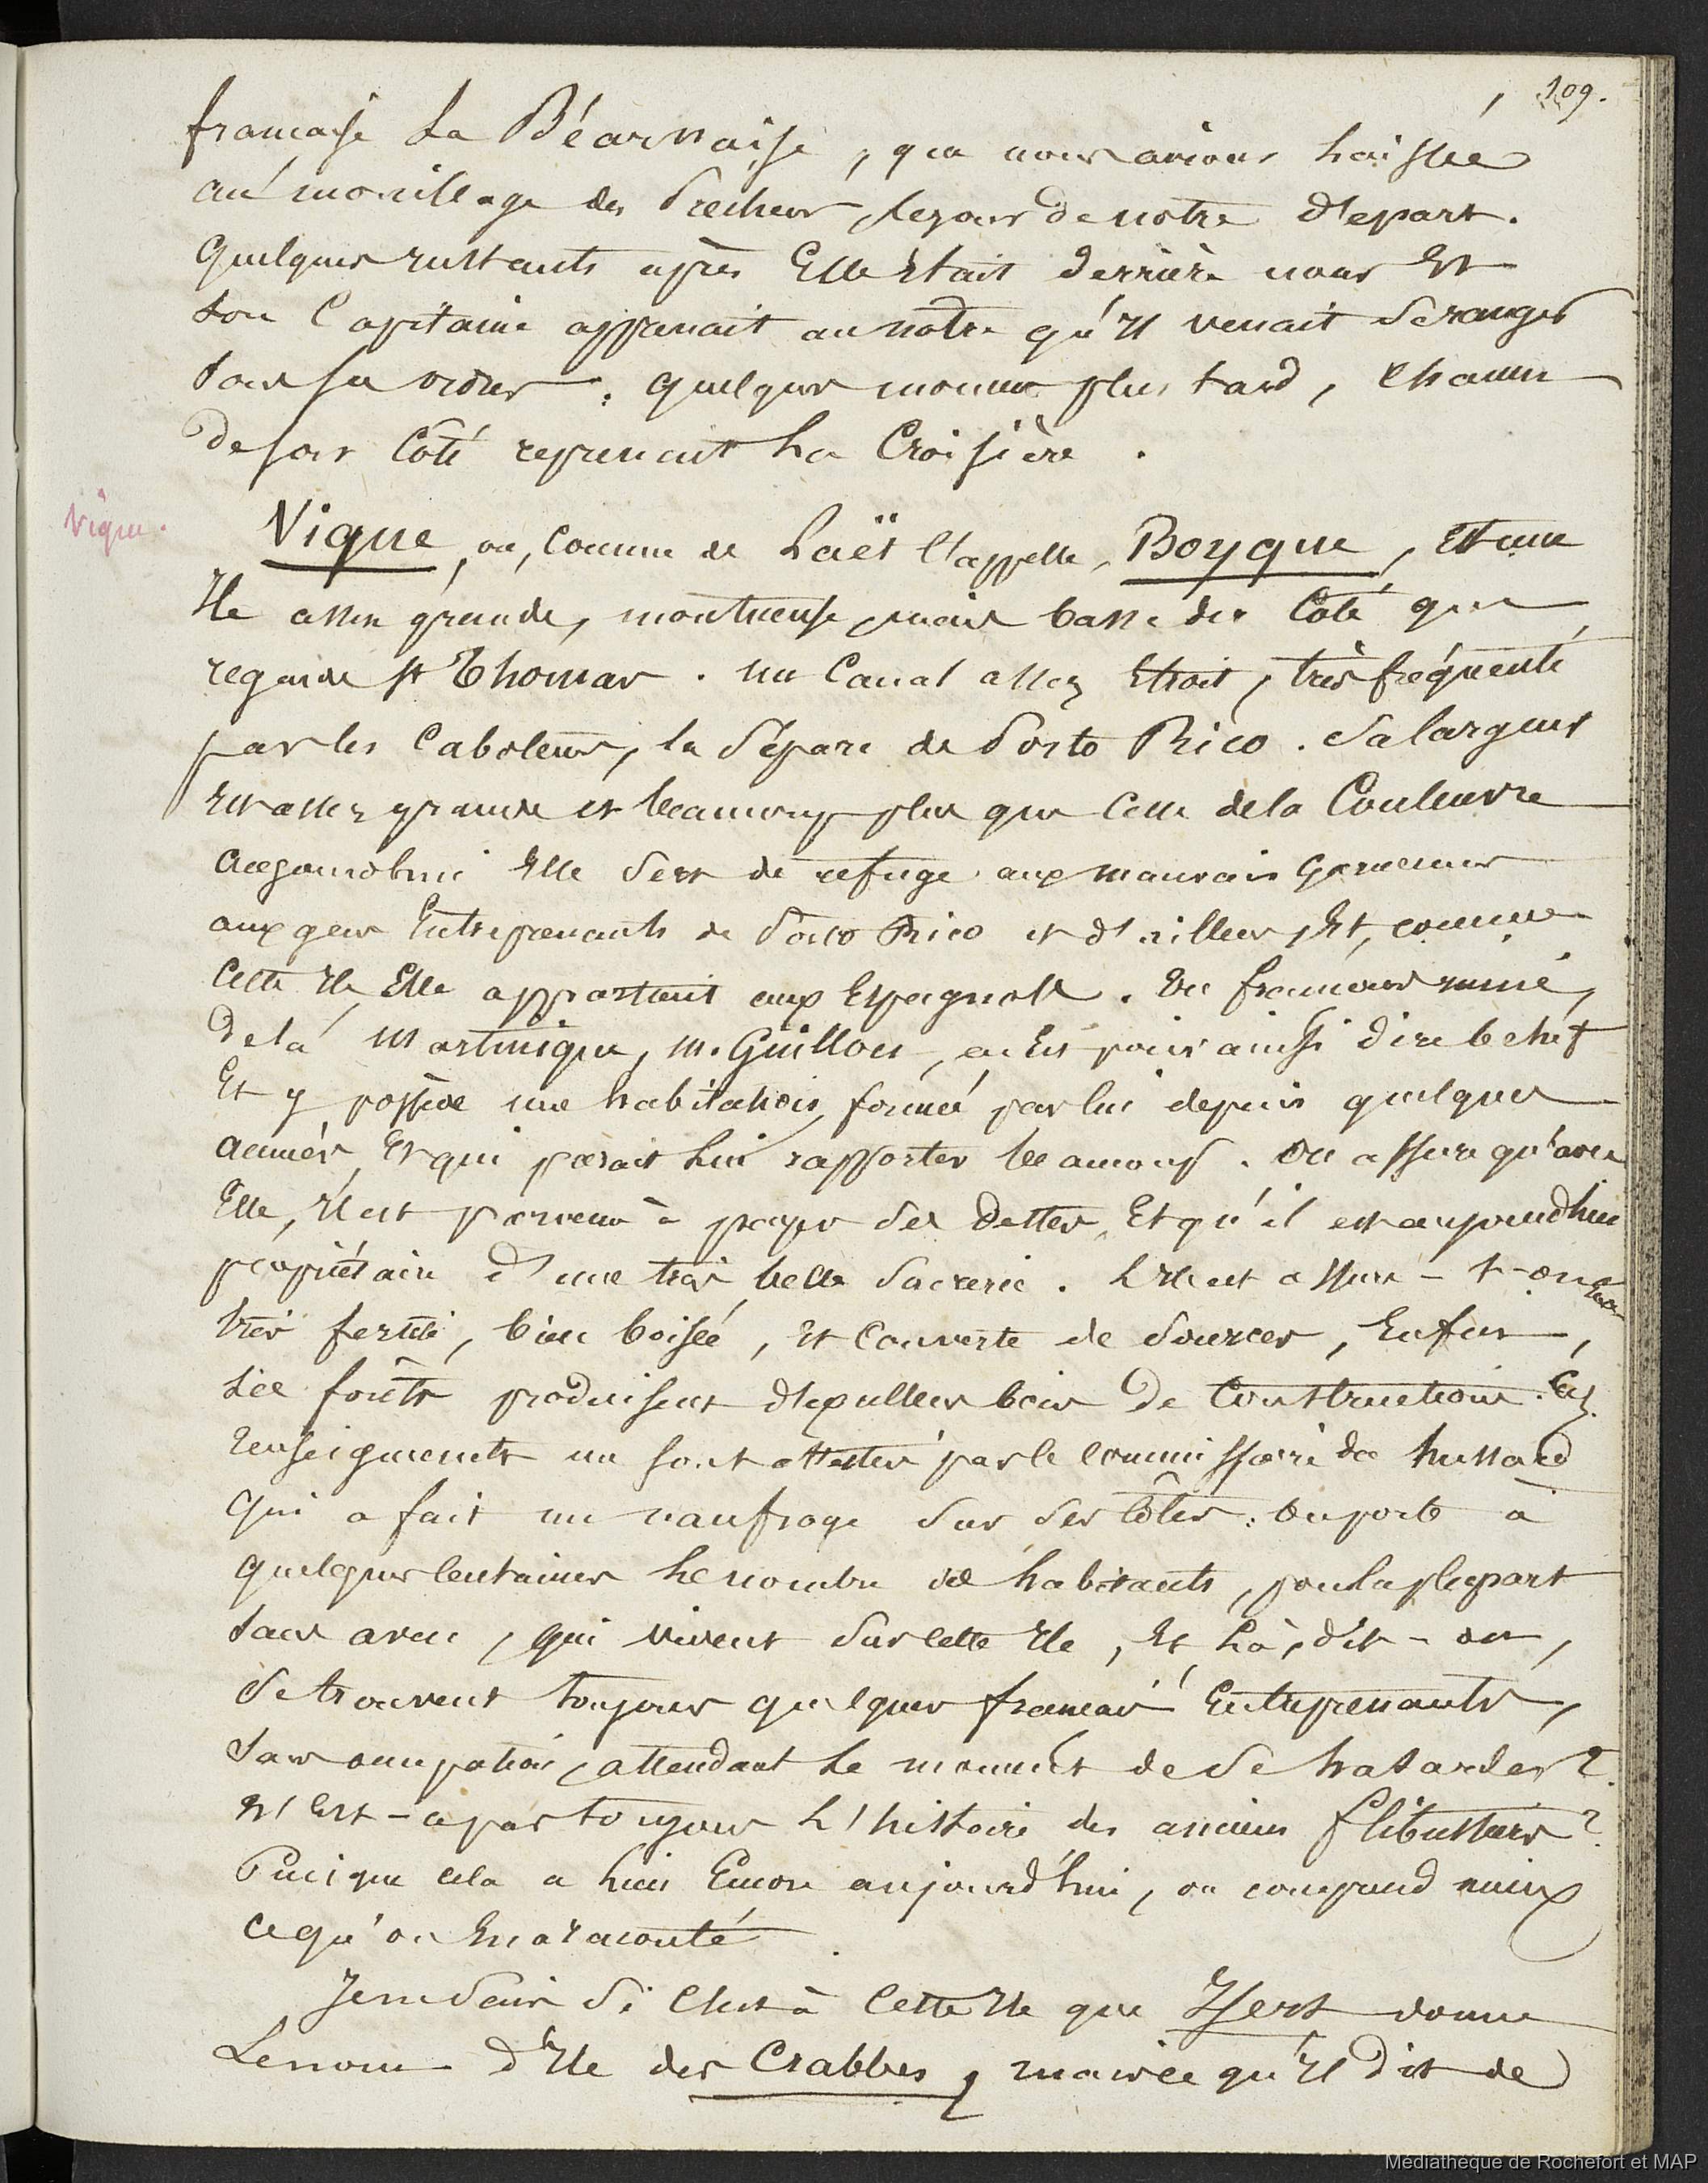 109.
francaise La Béarnaise, que nous avions laissée
au mouillage du Prêcheur, le jour de notre départ.
Quelques instants après Elle était derrière nous Et
son Capitaine apprenait au notre qu'Il venait se ranger
sous ses ordres. quelques momens plus tard, chacun
de son Côté reprenait la Croisière.
Vique.
Vique, ou, Comme de Laët l'appelle, Boyque, Est une
Ile assez grande, montueuse, mais basse du Coté qui
regarde St Thomas. un Canal assez Etroit, très fréquenté
par les Caboteurs, la Sépare de Porto Rico. Sa largeur
Est assez grande et beaucoup plus que Celle de la Couleuvre
aujourdhui Elle Sert de refuge aux mauvais garnemens
aux gens Entreprenants de Porto Rico et d'ailleurs, Et, comme
Cette Ile, Elle appartient aux Espagnols. Un francais ruiné,
de la Martinique, M. Guillou, en Est pour ainsi dire le chef
Et y possède une habitation, formée par lui depuis quelques
années, Et qui parait Lui rapporter beaucoup. On assure qu'avec
Elle, Il est parvenu à payer Ses dettes, Et qu'il est aujourdhui
propriétaire d'une très belle Sucrerie. L'Ile est assure-t-on
très fertile, bien boisée, et Couverte de Sources, Enfin,
Ses forêts produisent d'Excellens bois de Construction. Ces
renseignements me sont attestés par le Commissaire du hussard
qui a fait un naufrage Sur Ses Côtes: On porte à
quelques Centaines le nombre des habitants, pour la plupart
sans aveu, qui vivent Sur Cette Ile, Et Là, dit-on,
Se trouvent toujours quelques francais Entreprenants,
Sans occupation, attendant le moment de Se hasarder?
N'Est-ce pas toujours L'histoire des anciens flibustiers?
Puisque cela a lieu Encore aujourd'hui, on comprend mieux
ce qu'on En a raconté.
Je ne Sais Si C'est à Cette Ile que Isert donne
Le nom d'Ile des Crabbes, mais ce qu'Il dit de
Médiathèque de Rochefort et MAP